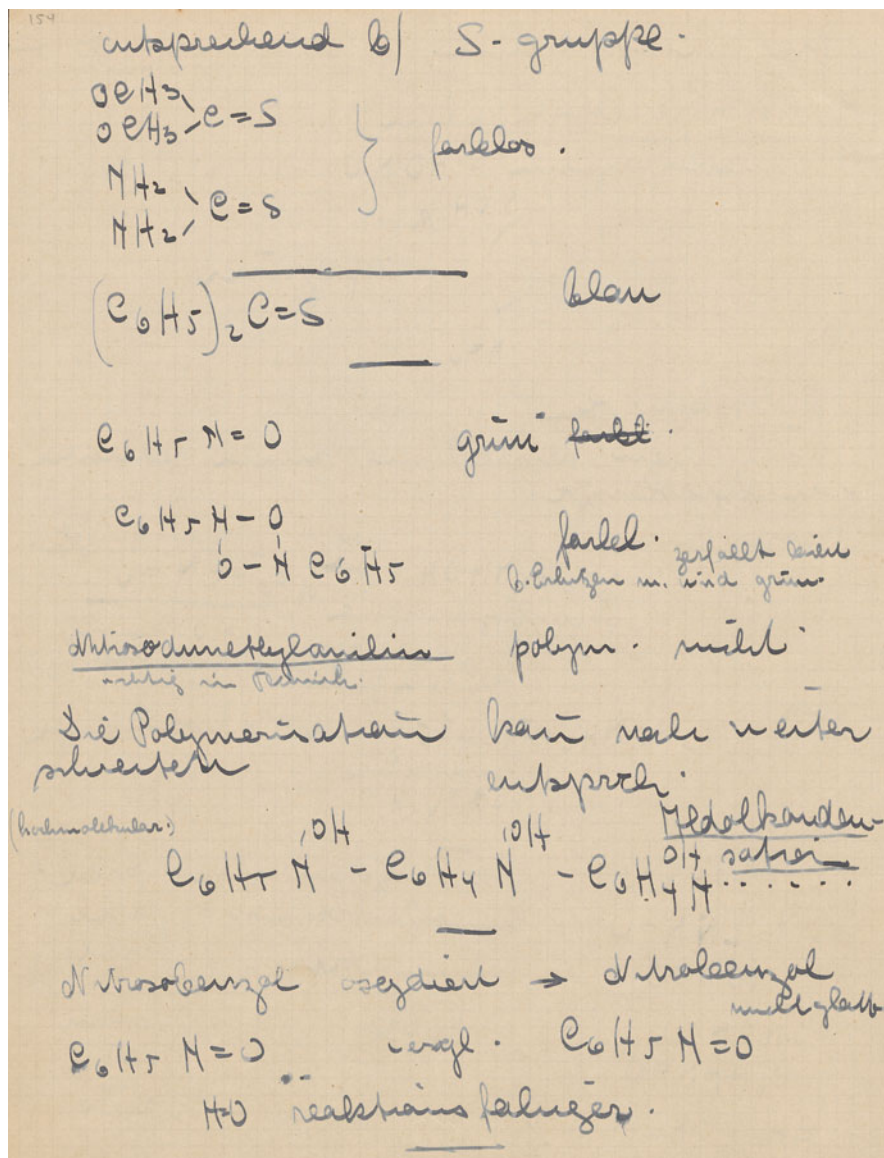 154
entsprechend b) S-gruppe.
OCH3
OCH3 C=S
farblos.
NH2
NH2 C=S
(C6H5)2C=S blau
C6H5N=O grün farbl.
C6H5N-O
O-N C6H5 farbl. zerfällt
b. Erhitzen u. wird grün.
Nitrosodimethylanilin polym. nicht
wichtig in
Die Polymerisation kann noch weiter
schreiten entsprech.
(hochmolekular.) Aldolkonden-
sation
OH OH OH
C6H5N - C6H4N - C6H4N......
Nitrosobenzol oxydiert → Nitrobenzol
nicht glatt
C6H5N=O vergl. C6H5N=O
N=O reaktionsfähiger.